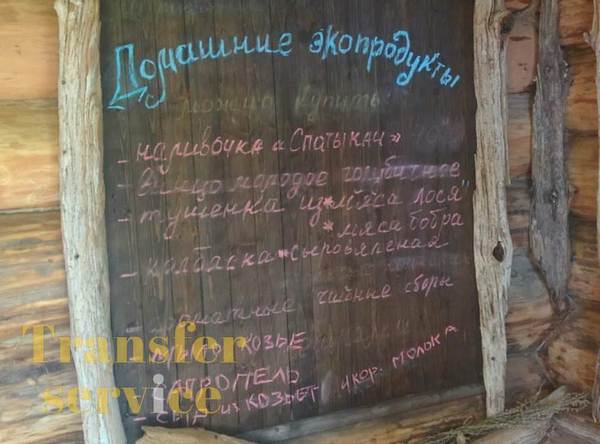 Домашние экопродукты
можно купить:
- наливочка «Спотыкач»
- Яйцо молодое голубиное
- тушенка из * мяса лося"
* мяса бобра
- колбаска * сыровяленая
- ароматные чайные сборы
- МЫЛО КОЗЬЕ
- САПРОПЕЛЬ
- СЫР ИЗ КОЗЬЕГ И КОР. МОЛЬКА
Transfer
service